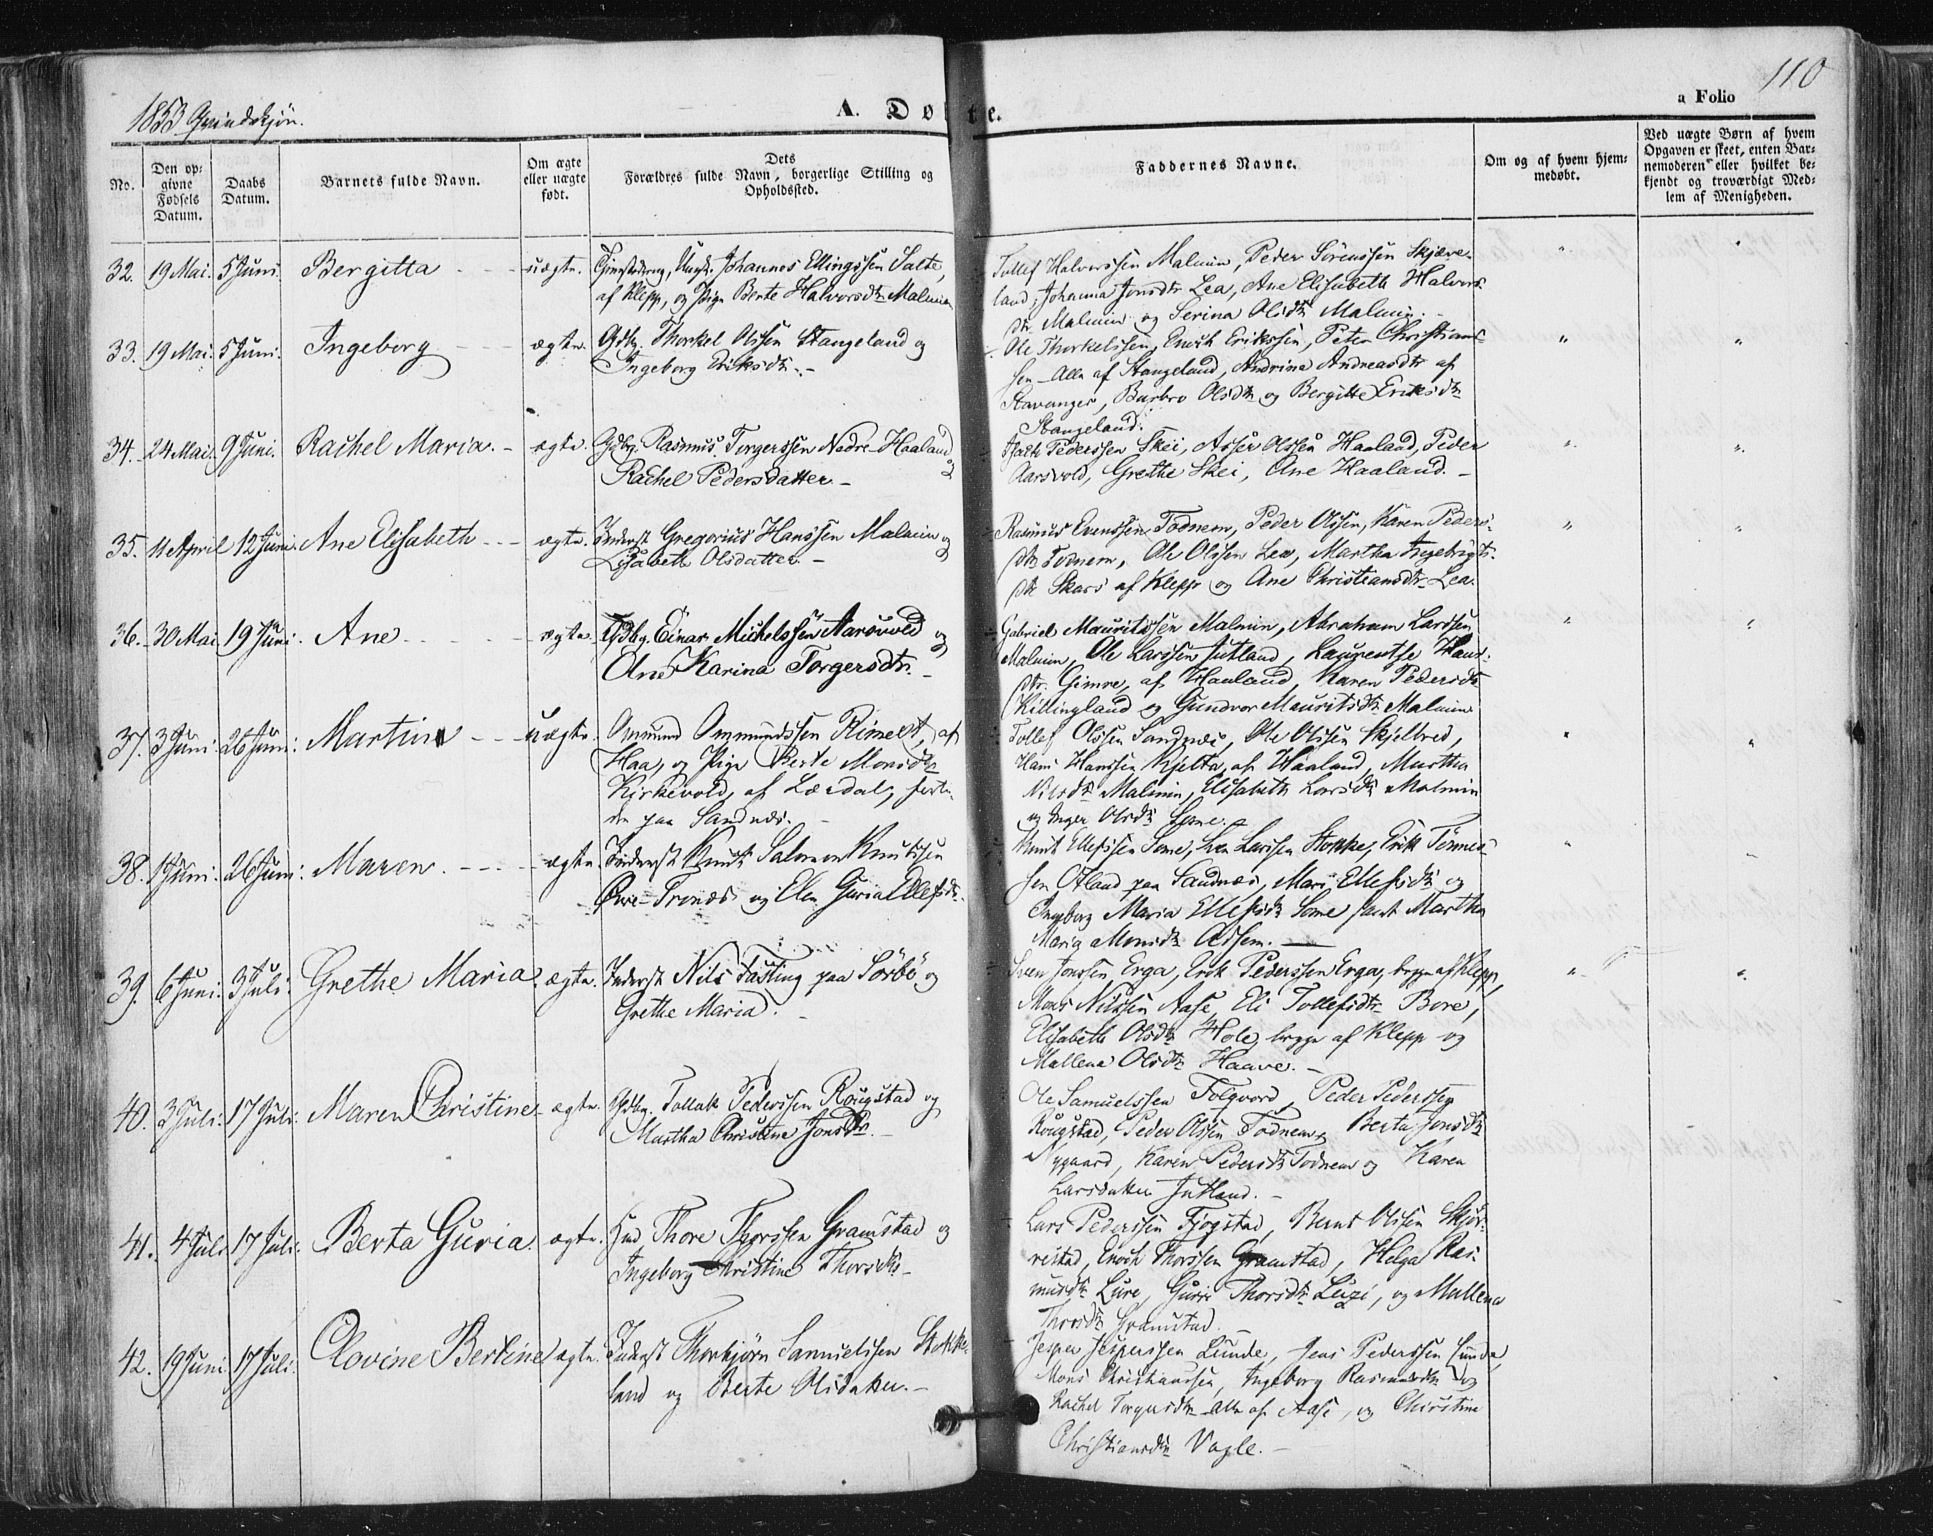 1853 Qvindekjøn.
A. Døbte.
a Folio
110
No.
Den op-
givne
Fødsels
Datum.
Daabs
Datum.
Barnets fulde Navn.
Om ægte
eller uægte
født.
Dets
Forældres fulde Navn, borgerlige Stilling og
Opholdssted.
Faddernes Navne.
Om og af hvem hjem-
medøbt.
Ved uægte Børn af hvem
Opgaven er skeet, enten Bar-
nemoderen eller hvilket be-
kjendt og troværdigt Med-
lem af Menigheden.
32. 19 Mai. 5 Juni. Bergitta uægte. Ungk. Johannes Ellingssen Salte,
af Klepp, og Pige Berte Halvorsdtr Malmin
Tollef Halvorssen Malmin, Peder Sörenssen Skjæve-
land, Johanna Jonsdtr Lea, Ane Elisabeth Halvors-
dtr. Malmin og Serina Olsdtr Malmin.
33. 19 Mai. 5 Juni. Ingeborg ægte. Gdbg. Thorkel Olssen Stangeland og
Ingeborg Eriksdtr.
Ole Thorkelssen, Enoch Erikssen, Peter Christians-
sen - Alle af Stangeland, Andrina Andreasdtr af
Stavanger, Barbro Olsdtr og Bergitte Eriksdtr
Stangeland.
34. 24 Mai. 9 Juni. Rachel Maria. ægte. Gdbg. Rasmus Torgerssen Nedre-Haaland
og
Rachel Pedersdatter.
Pederssen Skei, Asser Olssen Haaland, Peder
Aarsvold, Grethe Skei, Ane Haaland.
35. 11 April 12 Juni. Ane Elisabeth ægte. Inderst Gregorius Hanssen Malmin og
Lisabeth Olsdatter.
Rasmus Evenssen Todnem, Peder Olssen, Karen Peders-
dtr Todnem, Ole Olssen Lea, Martha Ingebrigts-
dtr Skars af Klepp og Ane Christiansdtr Lea.
36. 30 Mai. 19 Juni. Ane ægte. Gdbg. Einar Michelssen Aarsvold og
Ane Karina Torgersdtr.
Gabriel Mauritssen Malmin, Abraham Larssen
Malmin, Ole Larssen Jutland, Laurentze Hans-
dtr. Gimre, af Haaland, Karen Pedersdtr
Killingland og Gundvor Mauritsdtr Malmin
37. 3 Juni. 26 Juni. Martine uægte. Ommund Ommundssen Rimest, af
Haa, og Pige Berte Monsdtr
Kirkevold, af Læsdal,
paa Sandnæs.
Tollef Olssen Sandnæs, Ole Olssen Skjelbred,
Hans Hanssen Kjelta, af Haaland, Martha
Nilsdtr Malmin, Elisabeth Larsdtr Malmin
og Inger Olsdtr Some.
38. 1 Juni. 26 Juni. Maren. ægte. Inderst Knut Salomon Knutssen
Øvre-Tronæs og Elen Guria Ellefsdtr.
Knut Ellefssen Some, Sven Larssen Stokke, Erik Tönnes-
sen Oftland paa Sandnæs, Mari Ellefsdtr og
Ingeborg Maria Ellefsdtr Some samt Martha
Maria Monsdtr Adsem.
39. 6 Juni. 3 Juli. Grethe Maria. ægte. Inderst Nils Fasting paa Sörbö og
Grethe Maria.
Sven Jonssen Erga, Erik Pederssen Erga, begge af Klepp,
Mons Nilssen Aase, Eli Tollefsdtr Bore,
Elisabeth Olsdtr Hole, begge af Klepp og
Mallena Olsdtr Haave.
40. 3 Juli. 17 Juli. Maren Christine ægte. Gdbg. Tollak Pederssen Rougstad og
Martha Christine Jonsdtr.
Ole Samuelssen Folqvord, Peder Pederssen
Rougstad, Peder Olssen Todnem, Berta Jonsdtr
Nygaard, Karen Pedersdtr Todnem og Karen
Larsdatter Jutland.
41. 4 Juli 17 Juli. Berta Guria. ægte. Thore Thorssen Gramstad og
Ingeborg Christine Thorsdtr
Lars Pederssen Fjogstad, Bernt Olssen Skjör-
restad, Enoch Thorssen Gramstad, Helga Ras-
musdtr Lure, Guri Thorsdtr Luzi, og Mallena
Thorsdtr Gramstad.
42. 19 Juni 17 Juli. Olovine Bertine ægte. Inderst Thorbjörn Samuelssen Stokke-
land og Berte Olsdatter.
Jesper Jesperssen Lunde, Jens Pederssen Lunde,
Mons Christianssen, Ingeborg Rasmusdtr og
Rachel Torgersdtr - Alle af Aase, og Christine
Christiansdtr Vagle.